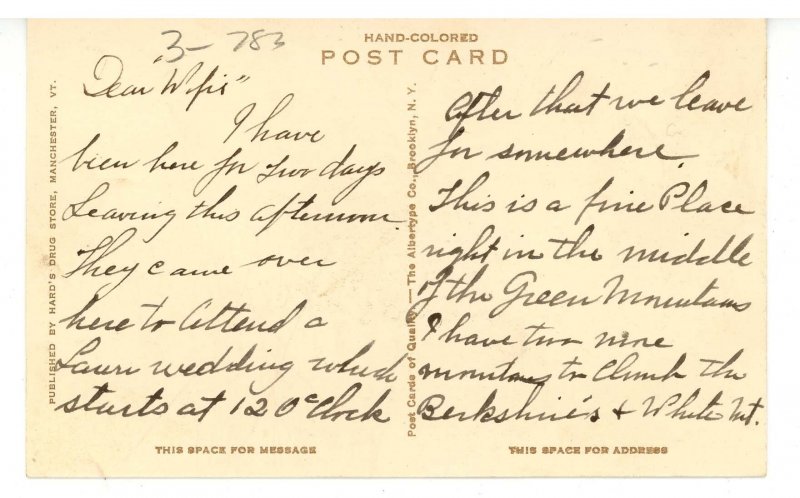 3- 783
HAND-COLORED
POST CARD
PUBLISHED BY HARD'S DRUG STORE, MANCHESTER, VT.
Dear "Wifie"
I have
been here for two days
Leaving this afternoon.
They came over
here to attend a
Lawn wedding which
starts at 12 O'Clock
THIS SPACE FOR MESSAGE
Post Cards of Quality. — The Albertype Co., Brooklyn, N. Y.
After that we leave
for somewhere.
This is a fine Place
right in the middle
of the Green Mountains
I have two more
to Climb the
Berkshire's + White Mt.
THIS SPACE FOR ADDRESS